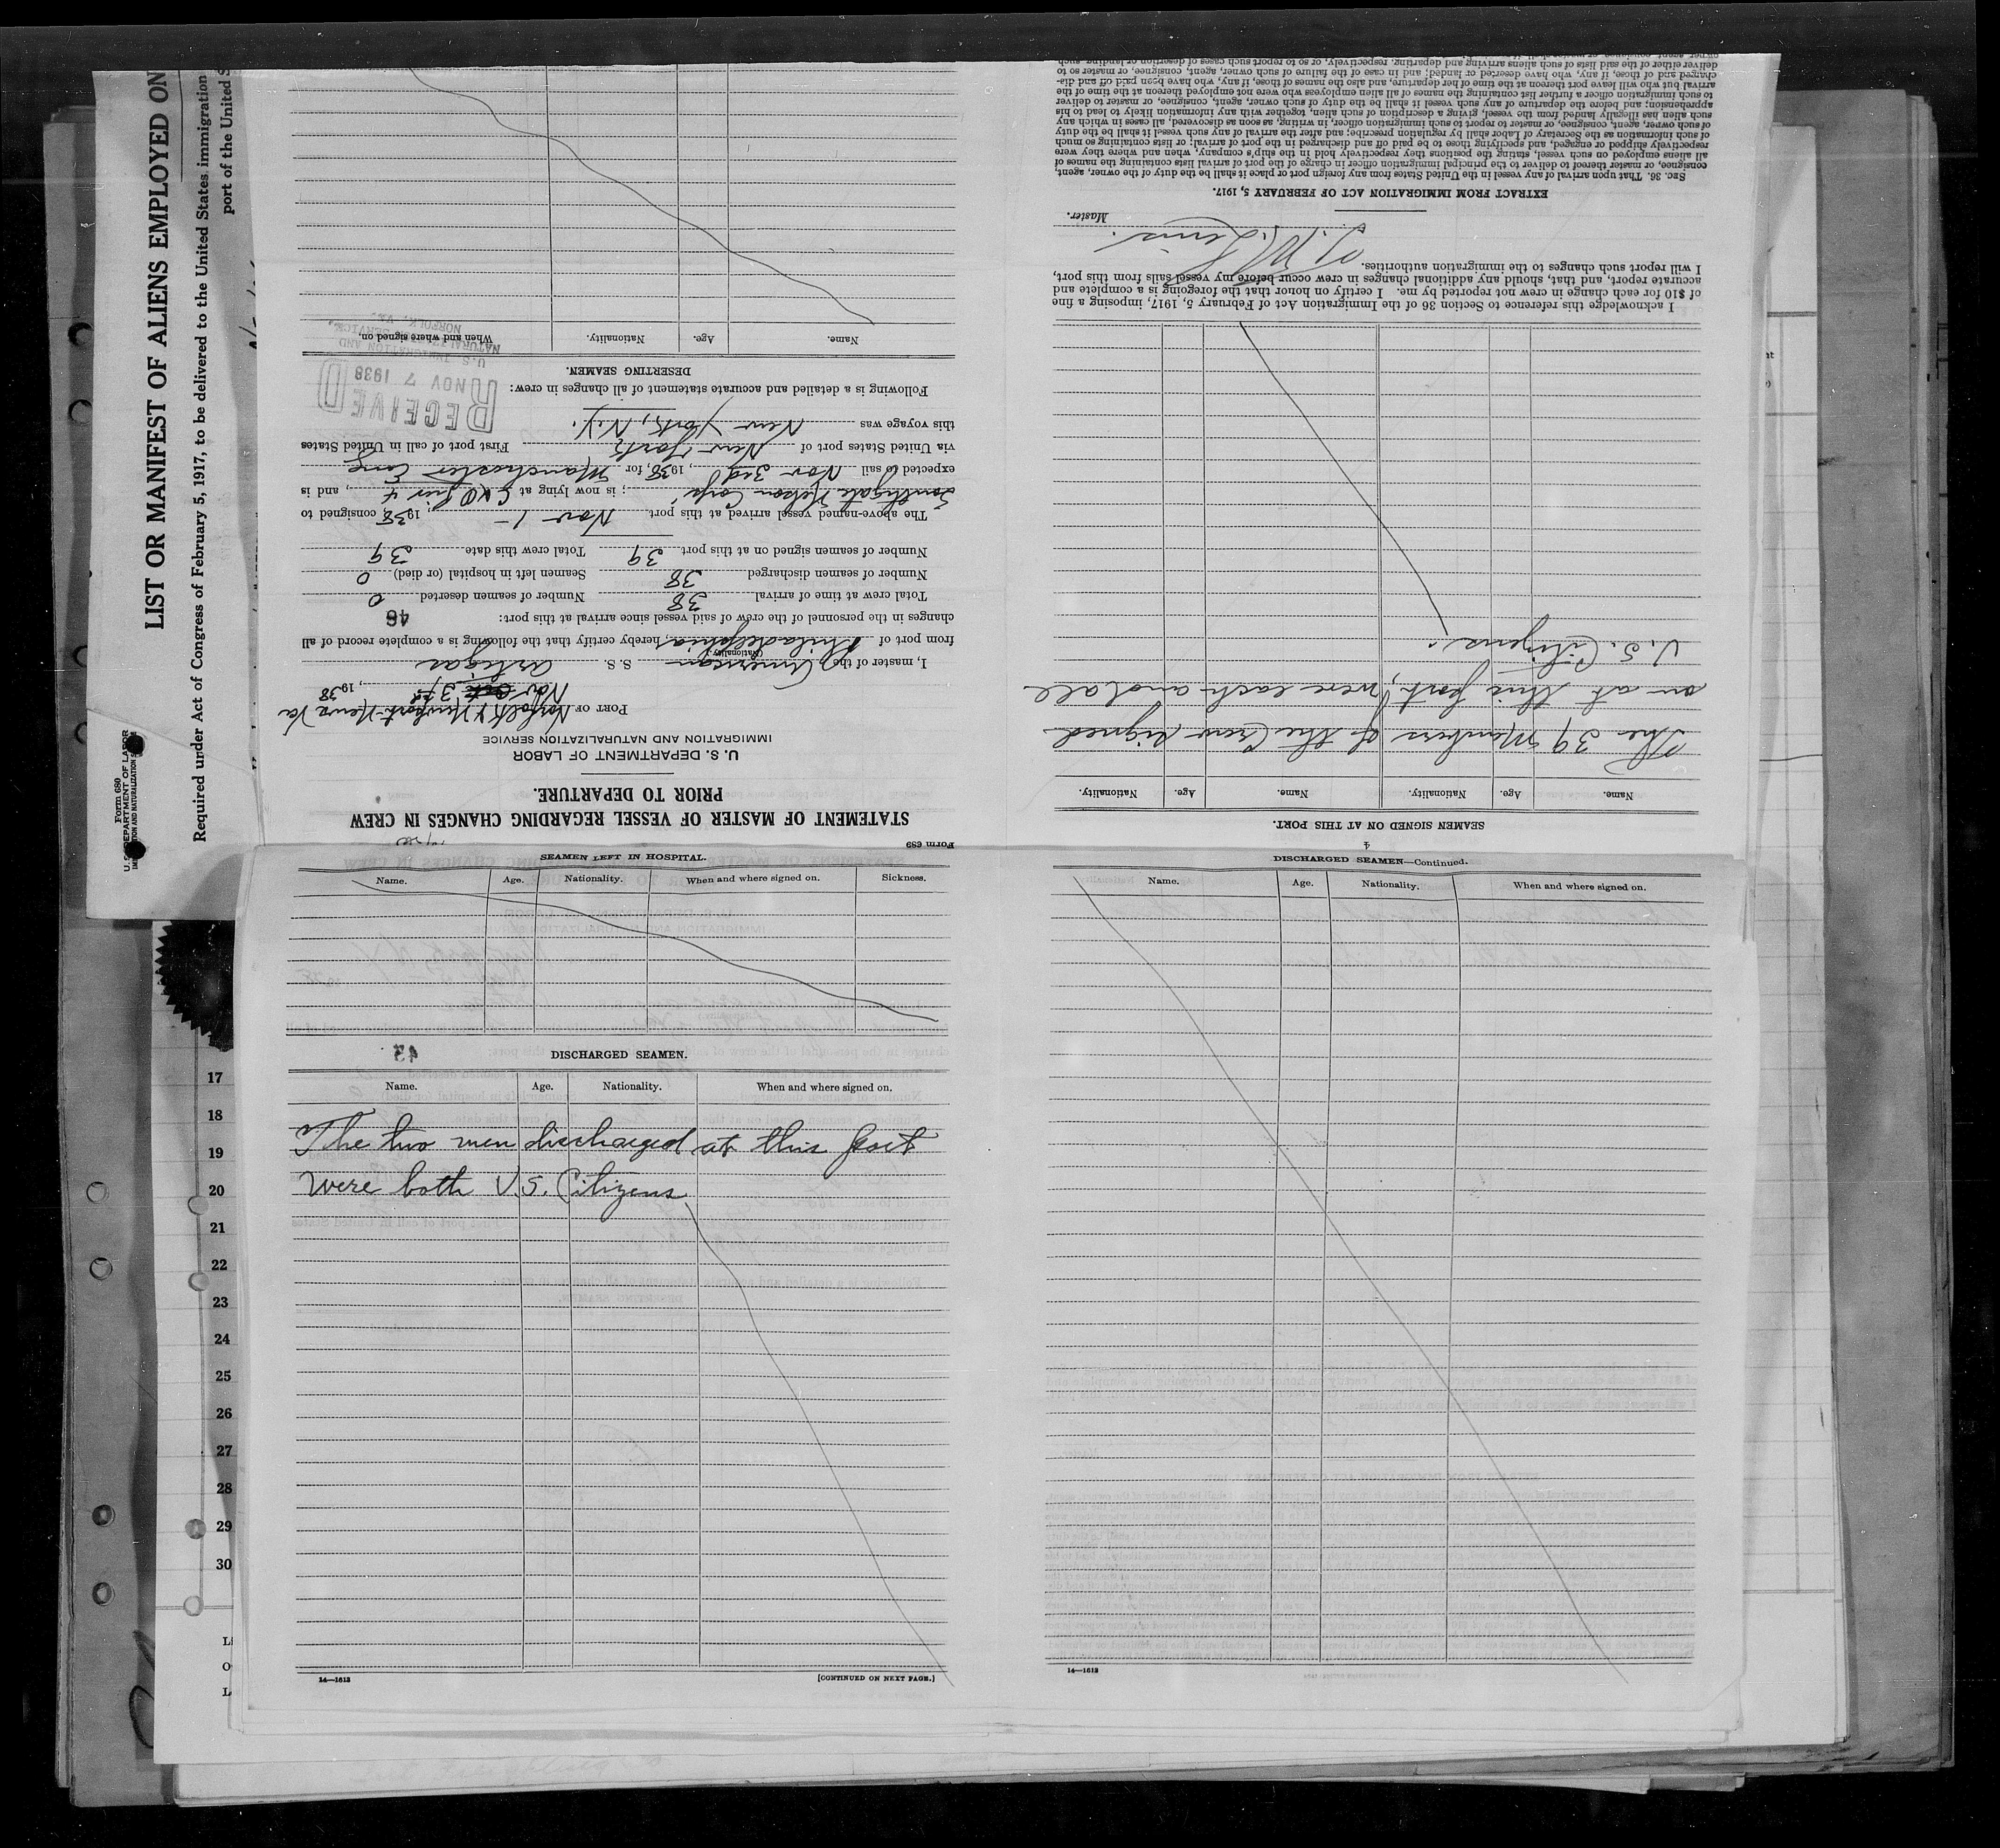 LIST OR MANIFEST OF ALIENS EMPLOYED ON
Required under Act of Congress of February 5, 1917, to be delivered to the United States immigration
port of the United S
Form 680
U. S. DEPARTMENT OF LABOR
IMMIGRATION AND NATURALIZATION
Form 689
STATEMENT OF MASTER OF VESSEL REGARDING CHANGES IN CREW
PRIOR TO DEPARTURE.
U. S. DEPARTMENT OF LABOR
IMMIGRATION AND NATURALIZATION SERVICE
PORT OF Norfolk & Newport News Va
Nov 3rd, 1938
I, master of the American S. S. Artigas
(Nationality)
from port of Philadelphia, hereby certify that the following is a complete record of all
changes in the personnel of the crew of said vessel since arrival at this port:
46
Total crew at time of arrival 38 Number of seamen deserted 0
Number of seamen discharged 38 Seamen left in hospital (or died) 0
Number of seamen signed on at this port 39 Total crew this date 39
The above-named vessel arrived at this port Nov 1-, 1938; consigned to
Southgate Nelson Corp; is now lying at C&O Pier 4, and is
expected to sail Nov 3rd, 1938, for Manchester Eng
via United States port of New York First port of call in United States
this voyage was New York, N.Y.
Following is a detailed and accurate statement of all changes in crew:
RECEIVED
NOV 7 1938
U. S. IMMIGRATION AND
NATURALIZATION SERVICE,
NORFOLK, VA.
DESERTING SEAMEN.
Name. Age. Nationality. When and where signed on.
SEAMEN SIGNED ON AT THIS PORT.
Name. Age. Nationality. Name. Age. Nationality.
The 39 Members of the Crew signed
on at this port, were each and all
U.S. Citizens.
I acknowledge this reference to Section 36 of the Immigration Act of February 5, 1917, imposing a fine
of $10 for each change in crew not reported by me. I certify on honor that the foregoing is a complete and
accurate report, and that, should any additional changes in crew occur before my vessel sails from this port,
I will report such changes to the immigration authorities.
Master.
EXTRACT FROM IMMIGRATION ACT OF FEBRUARY 5, 1917.
SEC. 36. That upon arrival of any vessel in the United States from any foreign port or place it shall be the duty of the owner, agent,
consignee, or master thereof to deliver to the principal immigration officer in charge of the port of arrival lists containing the names of
all aliens employed on such vessel, stating the positions they respectively hold in the ship's company, when and where they were
respectively shipped or engaged, and specifying those to be paid off and discharged in the port of arrival; or lists containing so much
of such information as the Secretary of Labor shall by regulation prescribe; and after the arrival of any such vessel it shall be the duty
of such owner, agent, consignee, or master to report to such immigration officer, in writing, as soon as discovered, all cases in which any
such alien has illegally landed from the vessel, giving a description of such alien, together with any information likely to lead to his
apprehension; and before the departure of any such vessel it shall be the duty of such owner, agent, consignee, or master to deliver
to such immigration officer a further list containing the names of all alien employees who were not employed thereon at the time of the
arrival but who will leave port thereon at the time of her departure, and also the names of those, if any, who have been paid off and dis-
charged and of those, if any, who have deserted or landed; and in case of the failure of such owner, agent, consignee, or master so to
deliver either of the said lists of such aliens arriving and departing, respectively, or so to report such cases of desertion or landing, such
SEAMEN LEFT IN HOSPITAL.
Name. Age. Nationality. When and where signed on. Sickness.
43
DISCHARGED SEAMEN.
Name. Age. Nationality. When and where signed on.
The two men discharged at this port
were both U.S. Citizens
14—1613
[CONTINUED ON NEXT PAGE.]
4
DISCHARGED SEAMEN—Continued.
Name. Age. Nationality. When and where signed on.
14—1613
17
18
19
20
21
22
23
24
25
26
27
28
29
30